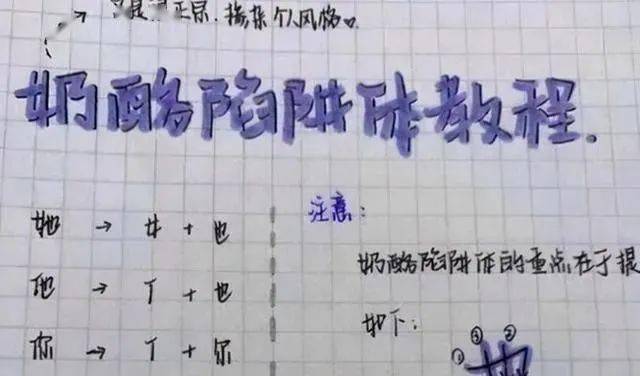 正常,掺杂个人风格。
奶酪陷阱体教程.
她 → 女 + 也
他 → 亻 + 也
你 → 亻 + 尔
注意:
奶酪陷阱体的重点在于提
如下:
① ③ ②